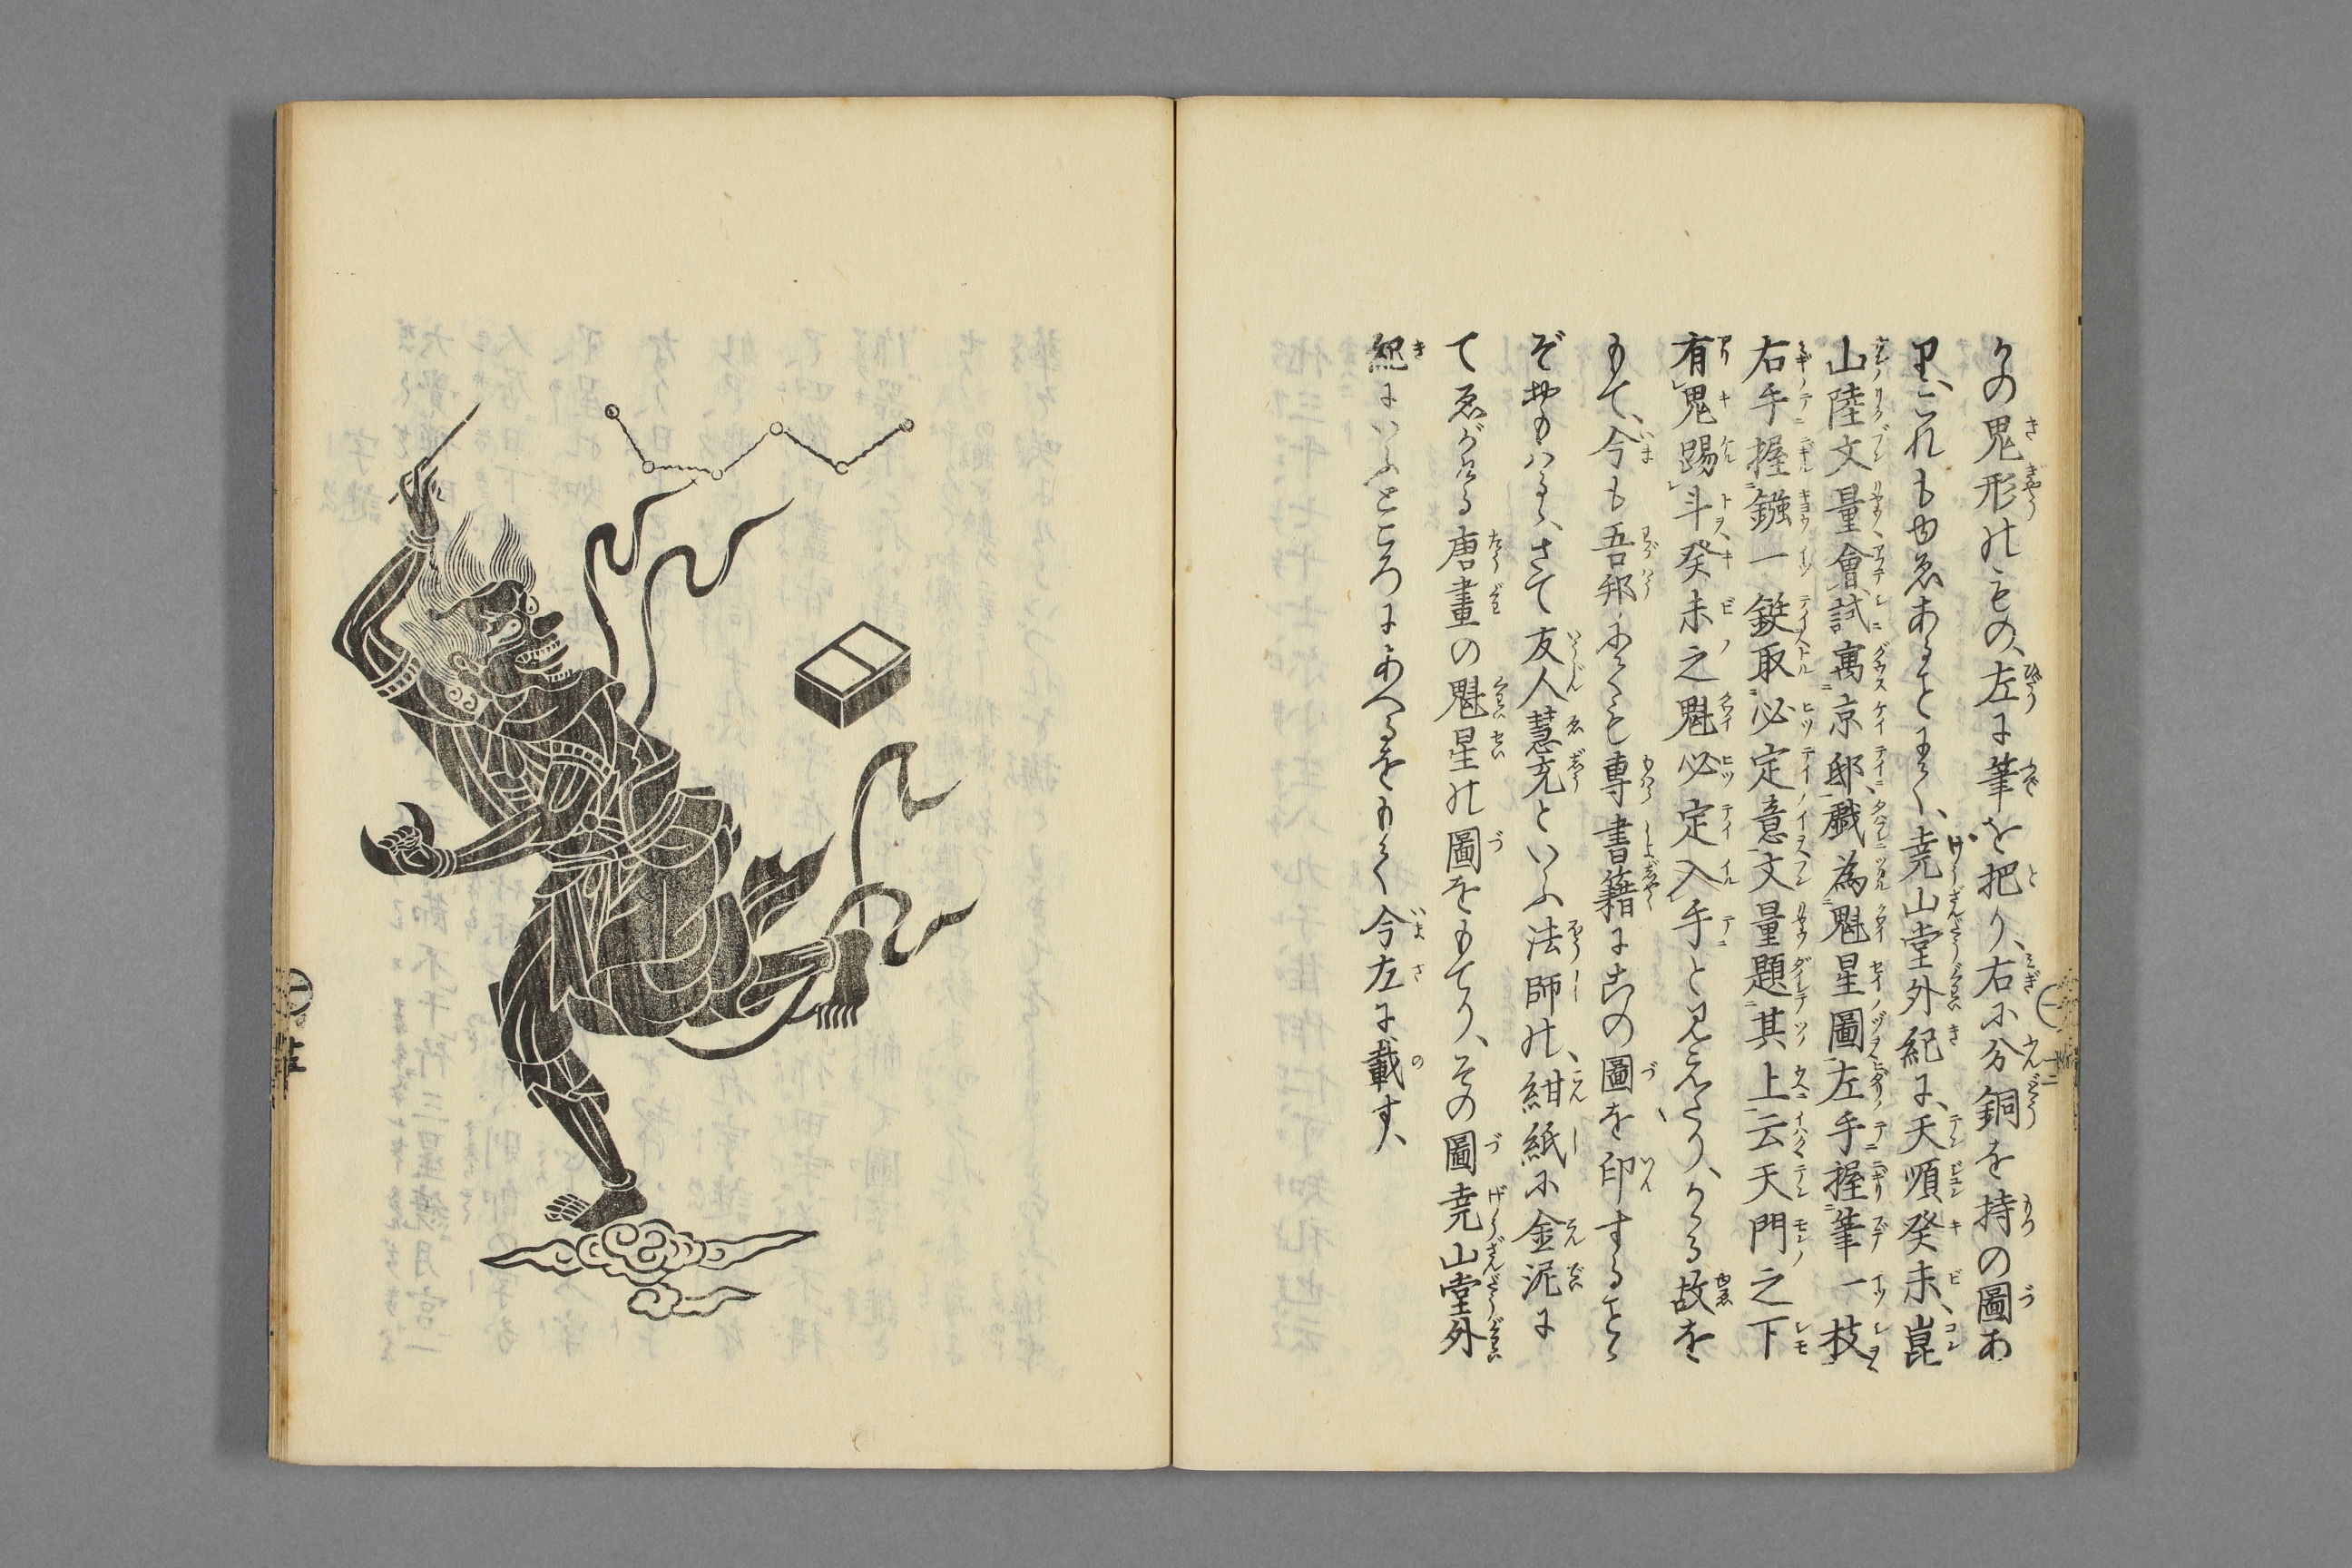 かの鬼形のもの、左に筆を把り、右に分銅を持の圖あ
り、これもゆゑあることにて、尭山堂外紀に、天順癸未、崑
山陸文量會試寓京邸、戲為魁星圖左手握筆一枝
右手握鏹一錠取必定意文量題其上云天門之下
有鬼踢斗癸未之魁必定入手と見えたり、かゝる故を
もて、今も吾邦にても専書籍に此の圖を印すること
ぞ
さて友人慧充といふ法師の、紺紙に金泥に
てゑがける唐畫の魁星の圖をもてり、その圖尭山堂外
紀にいふところにあへるをもて今左に載す、